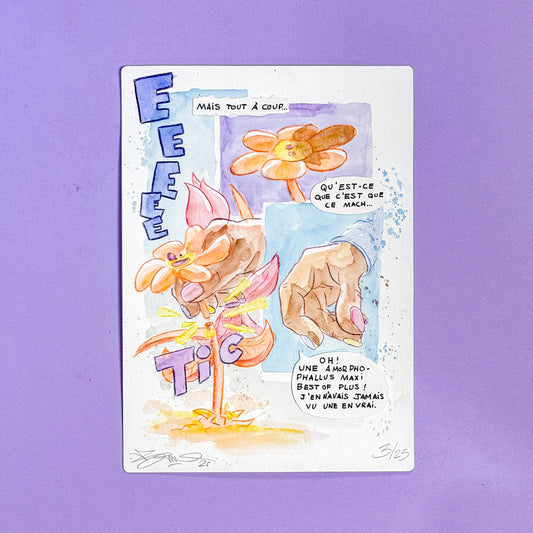 MAIS TOUT À COUP...
EEEEE
QU'EST-CE
QUE C'EST QUE
CE MACH...
TIC
OH!
UNE AMORPHO-
PHALLUS MAXI
BEST OF PLUS!
J'EN N'AVAIS JAMAIS
VU UNE EN VRAI.
3/25